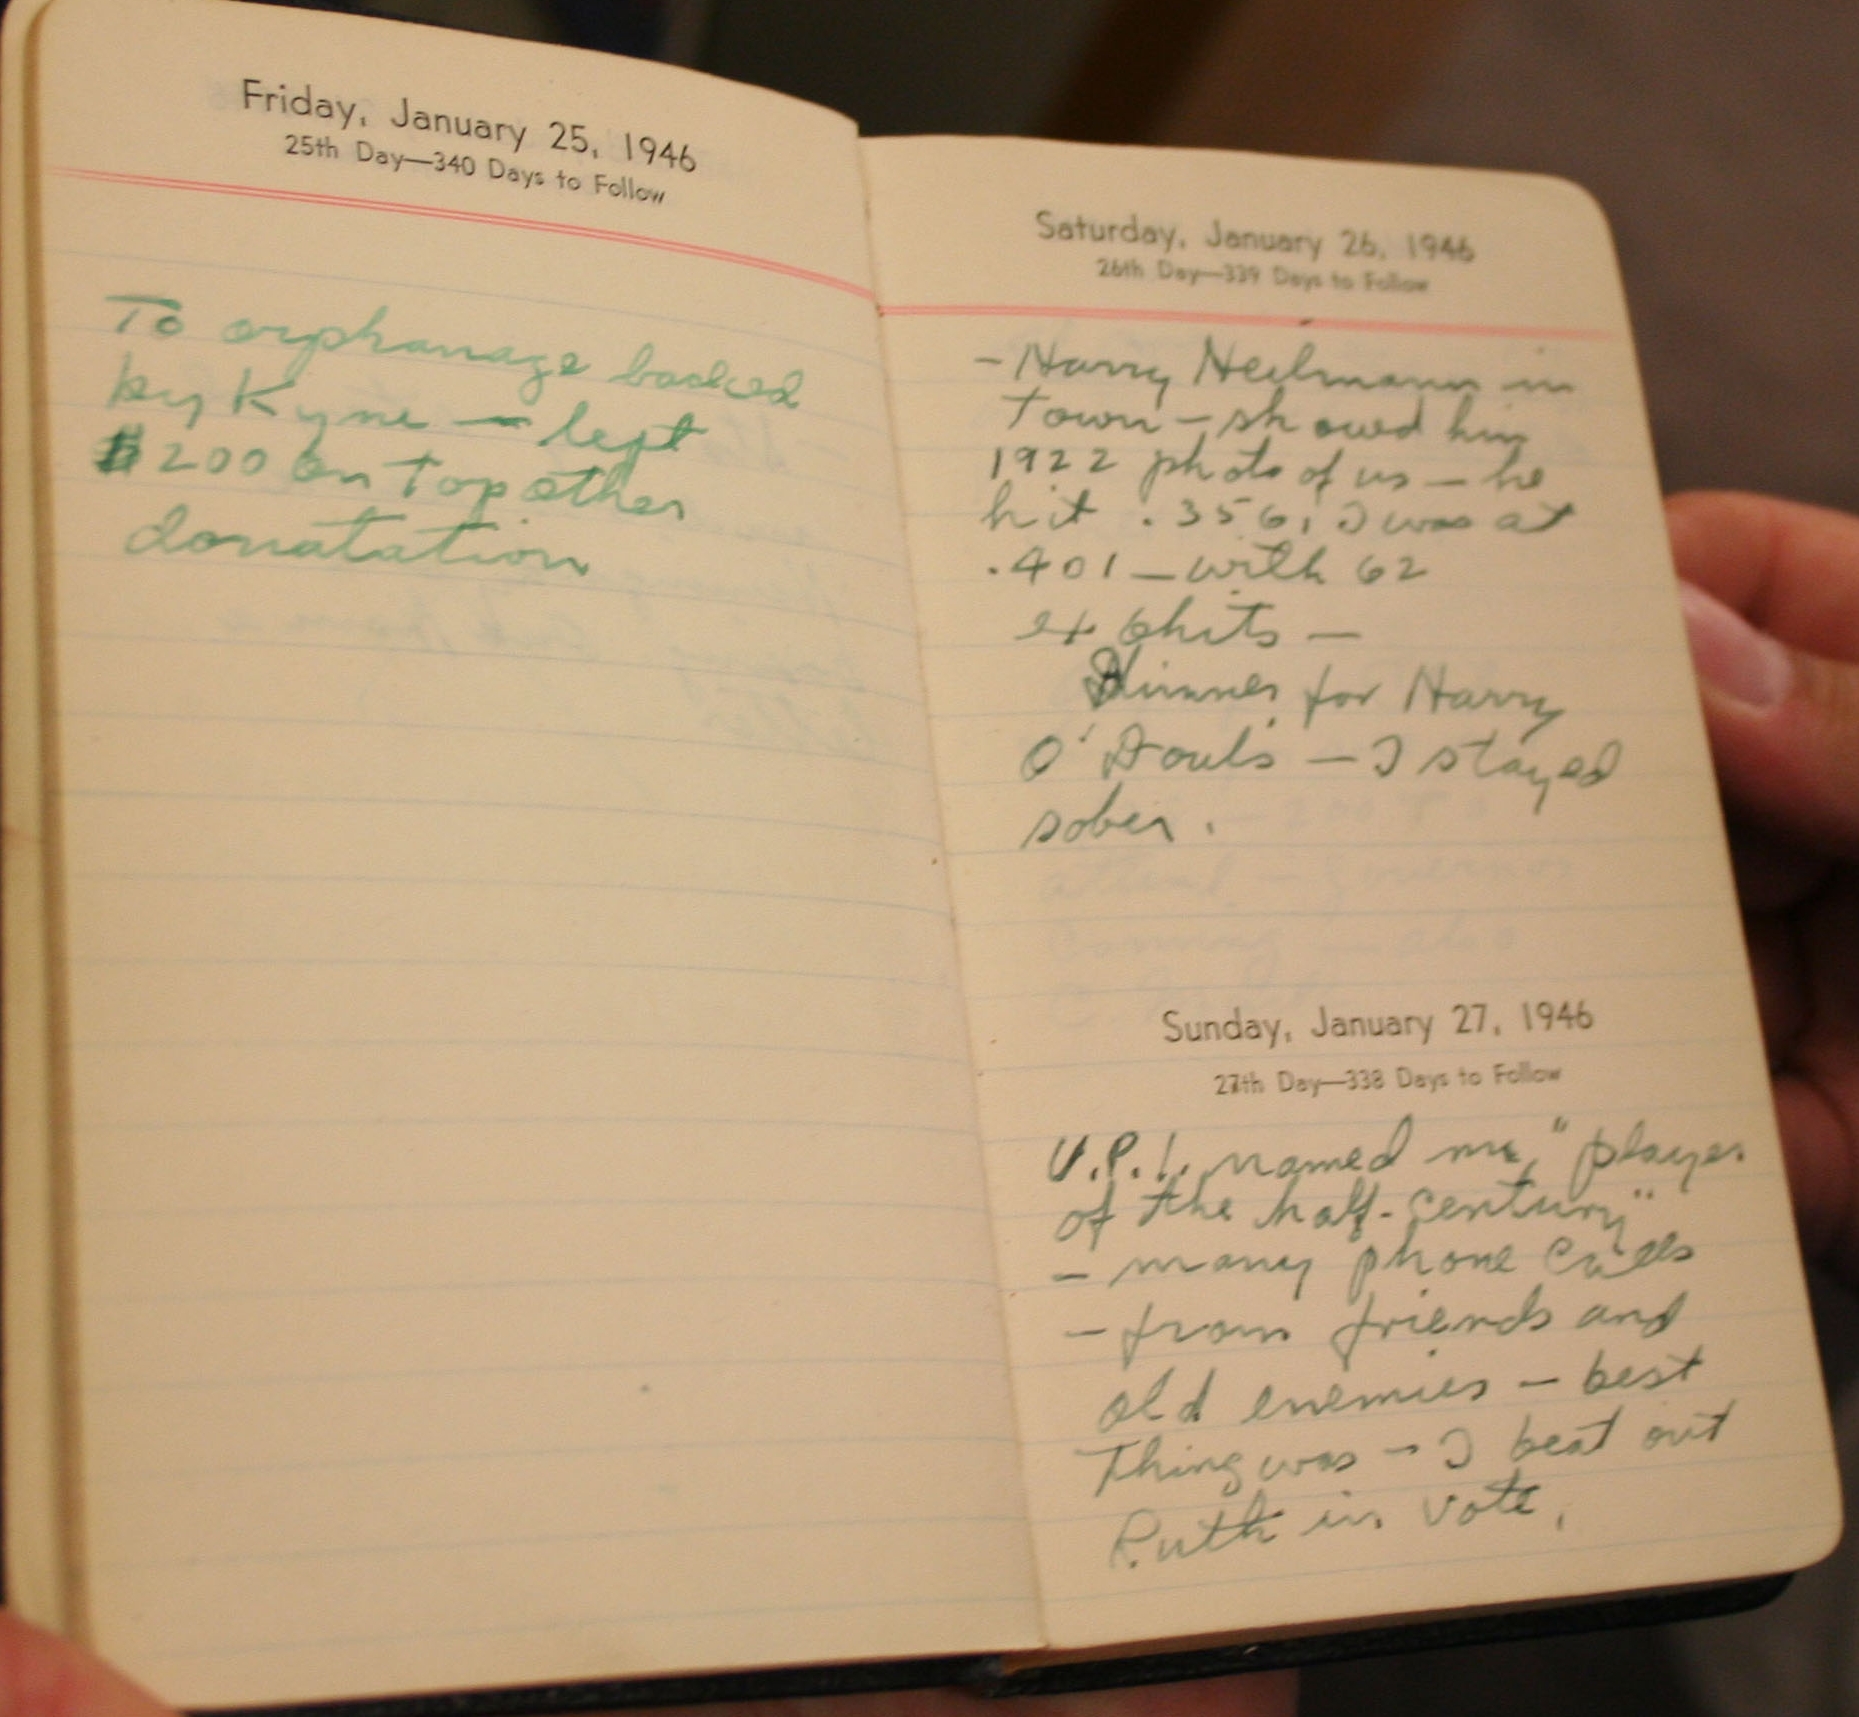 Friday, January 25, 1946
25th Day—340 Days to Follow
To orphanage backed
by Kyne — left
$200 on top other
donatation
Saturday, January 26, 1946
26th Day—339 Days to Follow
- Harry Heilmann in
town - showed him
1922 photo of us — he
hit .356, I was at
.401 — with 62
ex bhits —
Dinner for Harry
O'Douls — I stayed
sober.
Sunday, January 27, 1946
27th Day—338 Days to Follow
U.P.I. named me "player
of the half-century"
- many phone calls
- from friends and
old enemies — best
thing was - I beat out
Ruth in vote.